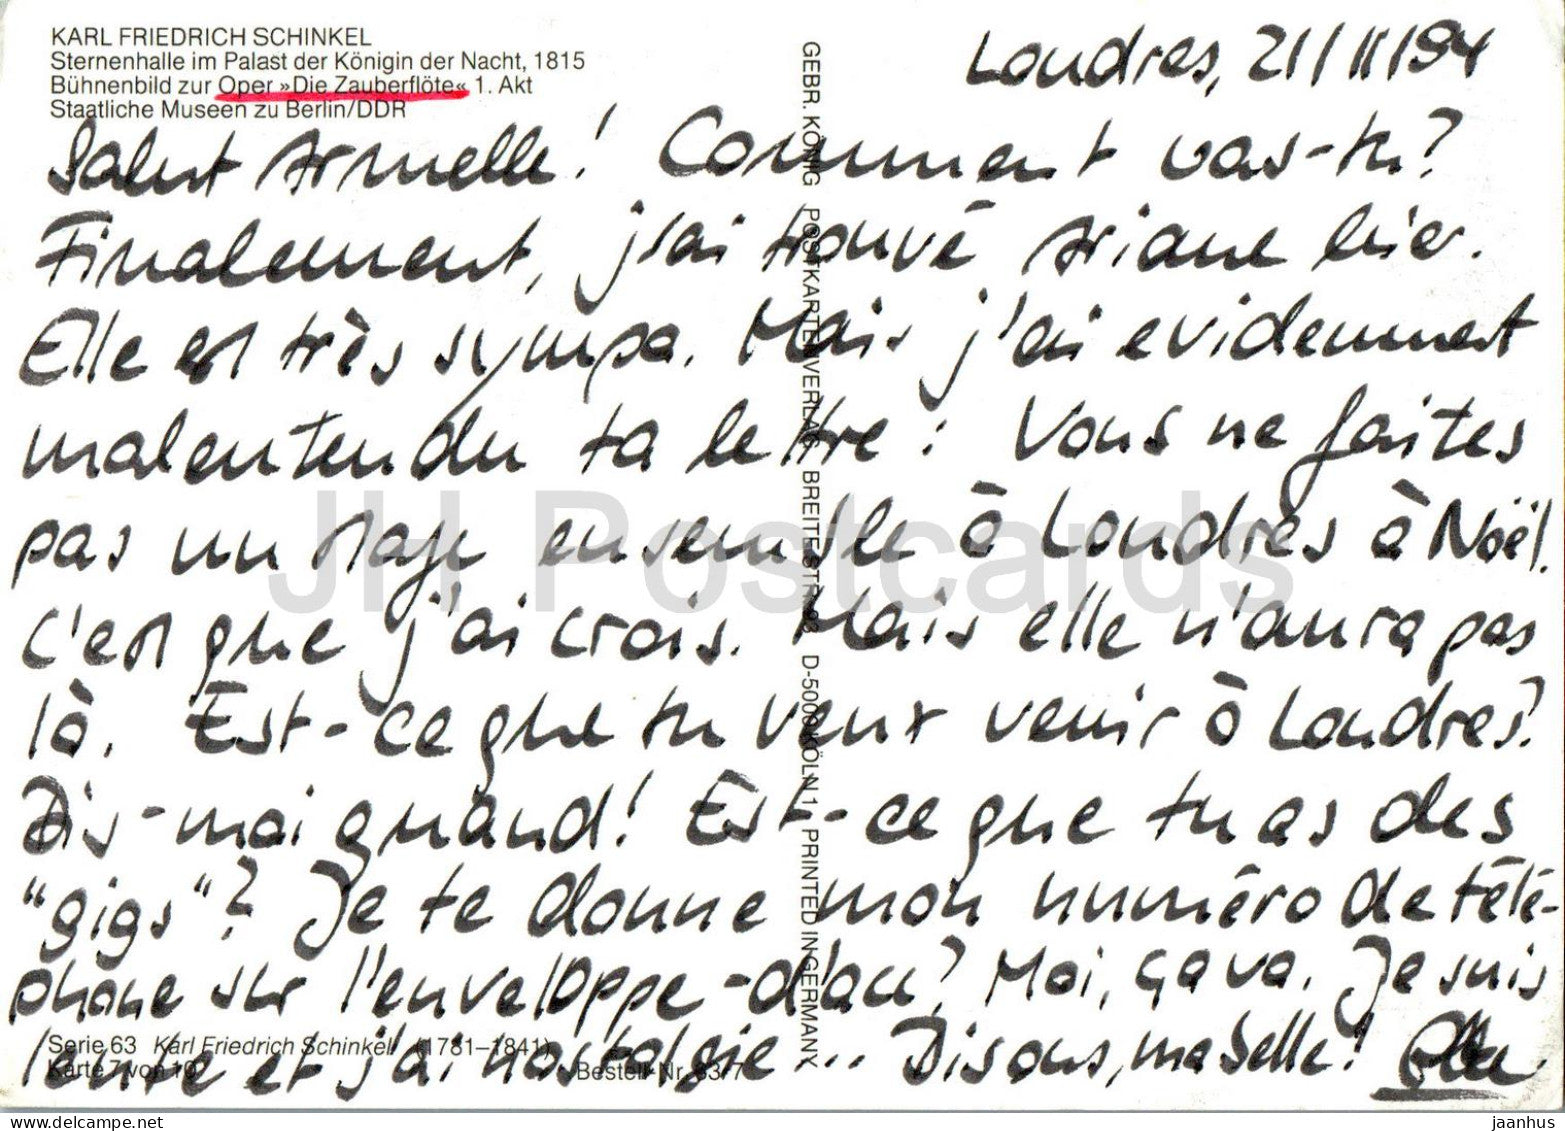 KARL FRIEDRICH SCHINKEL
Sternenhalle im Palast der Königin der Nacht, 1815
Bühnenbild zur Oper »Die Zauberflöte« 1. Akt
Staatliche Museen zu Berlin/DDR
Londres, 21/11/94
Salut Armelle! Comment vas-tu?
Finalement, j'ai trouvé Ariane hier.
Elle est très sympa. Mais j'ai evidemment
malentendu ta lettre: Vous ne faites
pas un stage ensemble à Londres à Noël.
C'est que j'ai crois. Mais elle n'aura pas
là. Est-ce que tu veux venir à Londres?
Dis-moi quand! Est-ce que tu as des
"gigs"? Je te donne mon numéro de télé-
phone sur l'enveloppe - d'acc? Moi, ça va. Je suis
lente et j'ai nostalgie... Disons, ma belle!
Serie 63 Karl Friedrich Schinkel (1781–1841)
Karte 7 von 10
Bestell-Nr. 63/7
GEBR. KÖNIG POSTKARTENVERLAG BREITE STR. 93 D-5000 KÖLN 1 PRINTED IN GERMANY
JH Postcards
jaanhus
delcampe.net